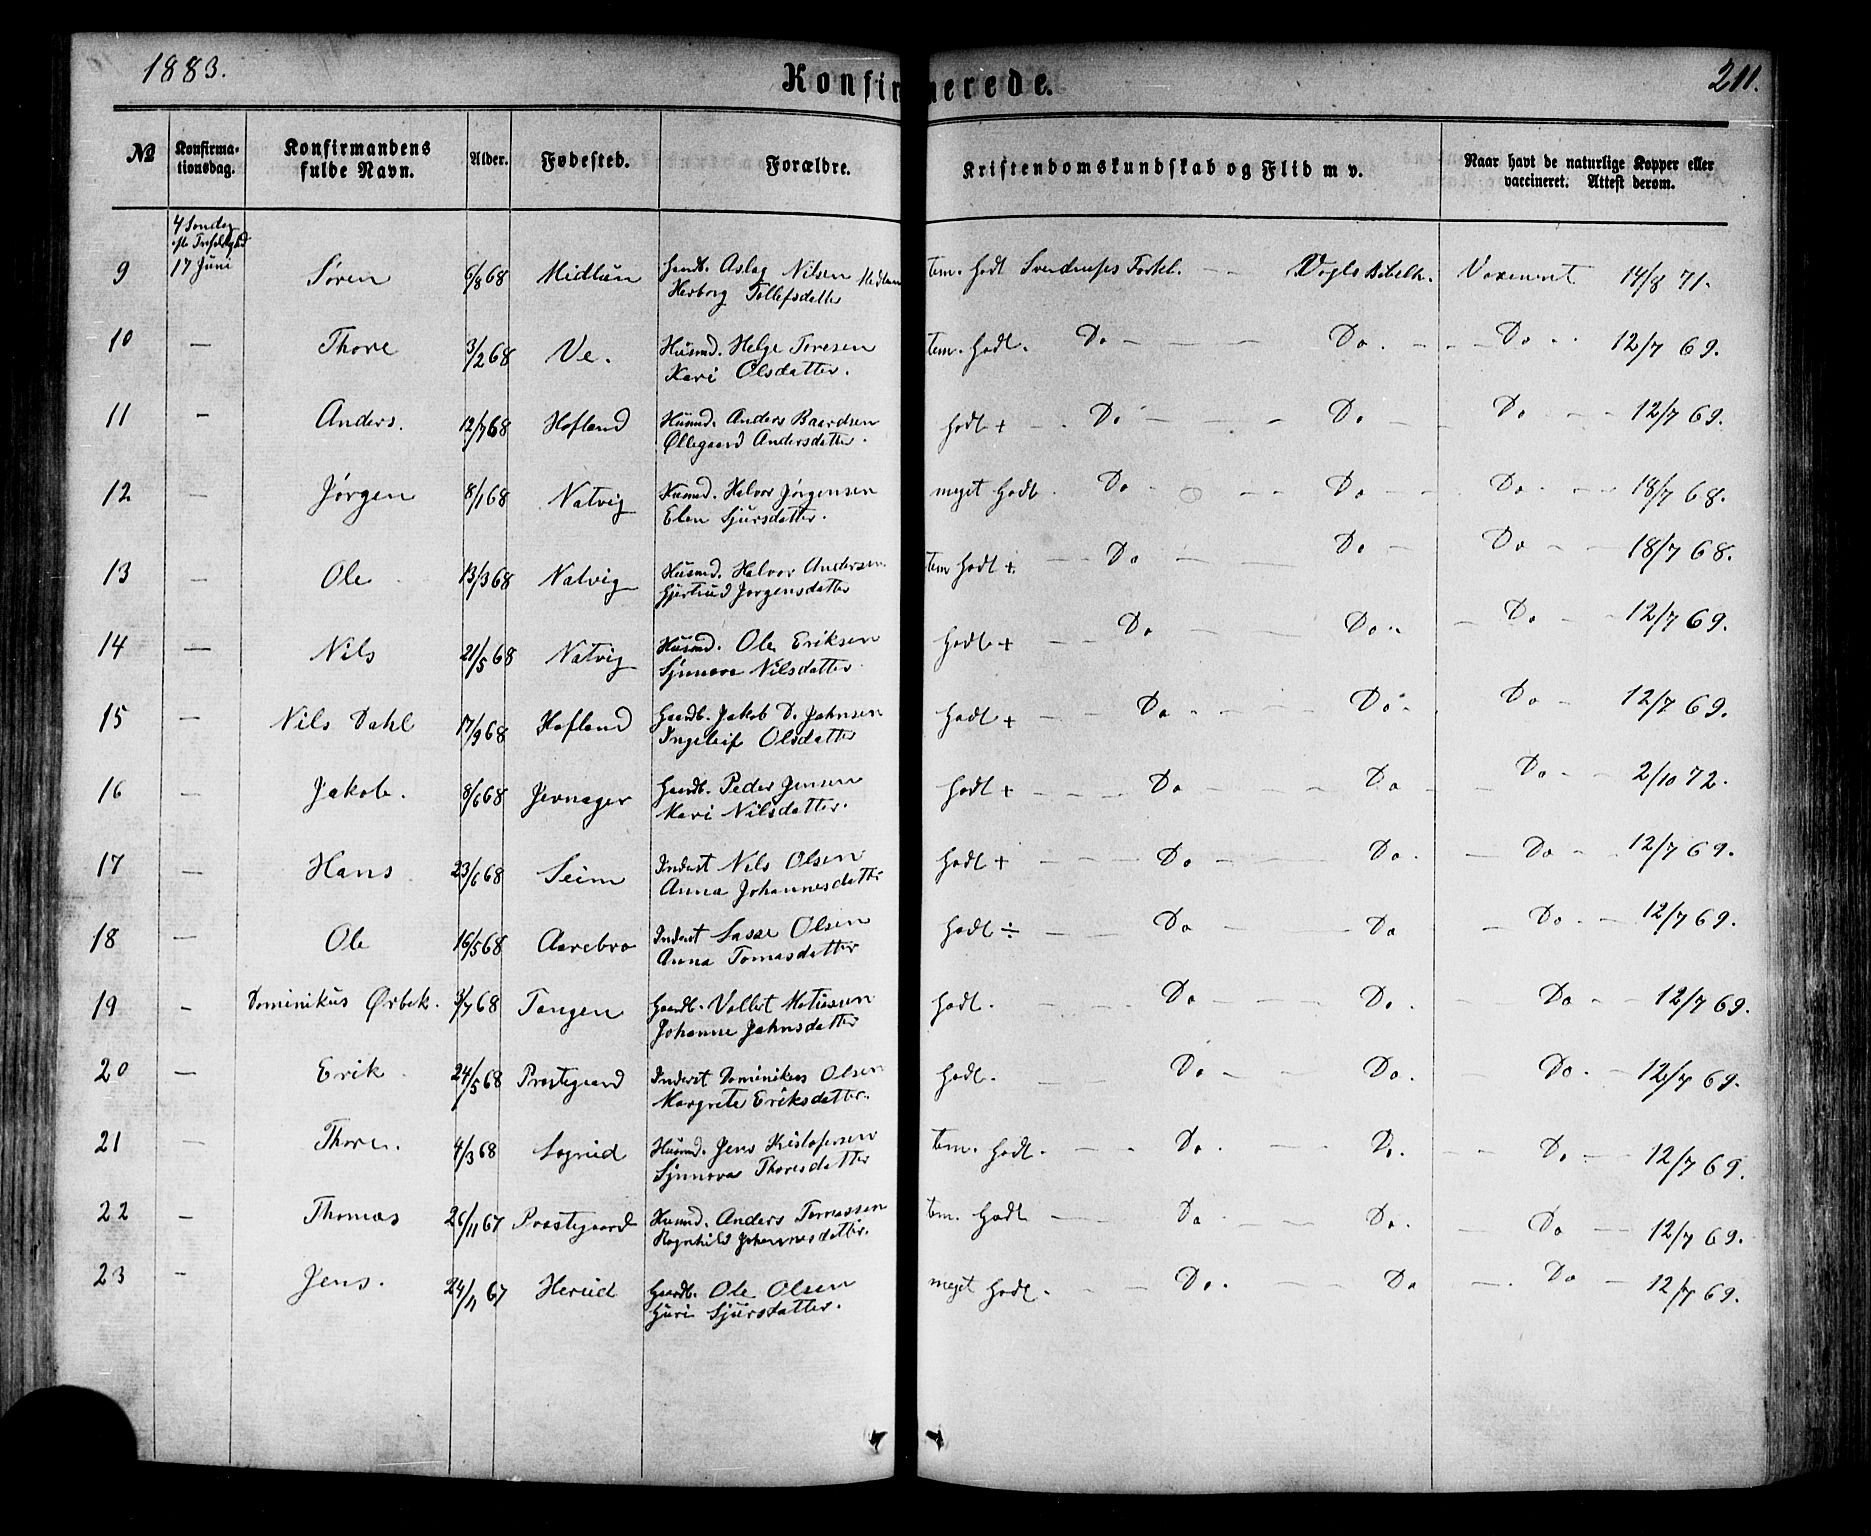 1883.
Konfirmerede.
211.
№ Konfirma-tionsdag. Konfirmandens fulde Navn. Alder. Fødested. Forældre. Kristendomskundskab og Flid m v. Naar havt de naturlige Kopper eller vaccineret. Attest derom.
4 Søndag
17 Juni
9 Søren 6/8 68 Midlun Gaardb. Aslag Nilsen Midlun tem. Godt Sverdrups Forkl. — Vogts Bibelh. Vaxineret 14/8 71.
Herborg Tollefsdatter
10 — Thore 3/2 68 Ve. Husmd. Helge Toresen tem. Godt. Do — Do. — Do 12/7 69.
Kari Olsdatter.
11 — Anders. 12/7 68 Hofland Husmd. Anders Baardsen Godt + Do — Do — Do — 12/7 69.
Øllegaard Andersdatter.
12 — Jørgen 8/1 68 Natvig Husmd. Halvor Jørgensen meget Godt. Do — Do — Do — 18/7 68.
Elen Sjursdatter.
13 — Ole 13/3 68 Natvig Husmd. Halvor Andersen tem Godt + — Do — Do — Do — 18/7 68.
Gjertrud Jørgensdatter
14 — Nils 21/5 68 Natvig Husmd. Ole Eriksen Godt + — Do — Do — Do — 12/7 69.
Synneva Nilsdatter
15 — Nils Dahl 17/9 68 Hofland Gaardb. Jakob D. Jahnsen Godt + — Do — Do — Do — 12/7 69.
Ingeleif Olsdatter
16 — Jakob. 8/6 68 Jernager Gaardb. Peder Jensen Godt + — Do — Do — Do — 2/10 72.
Kari Nilsdatter.
17 — Hans 23/6 68 Seim Inderst Nils Olsen Godt + — Do — Do. — Do — 12/7 69.
Anna Johannesdatter
18 — Ole 16/5 68 Aarebro Inderst Lasse Olsen Godt ÷ — Do — Do — Do. — 12/7 69.
Anna Tomasdatter
19 — Dominikus Ørbek. 3/7 68 Tangen Gaardb. Vollert Matiesen Godt. — Do — Do. Do — 12/7 69.
Johanne Jahnsdatter
20 — Erik 24/5 68 Prestegaard Inderst Dominikus Olsen Godt. — Do — Do. Do. — 12/7 69.
Margrete Eriksdatter.
21 — Thore. 4/3 68 Sognid Husmd. Jens Kristofersen tem. Godt. — Do. — Do. — Do. — 12/7 69.
Synneva Thoresdatter
22 — Thomas 26/11 67 Prestegaard Husmd. Anders Tomassen tem. Godt — Do. — Do. — Do — 12/7 69.
Ragnhild Johannesdatter.
23 — Jens. 24/11 67 Herud Gaardb. Ole Olsen meget Godt. — Do. — Do — Do — 12/7 69.
Guri Sjursdatter.